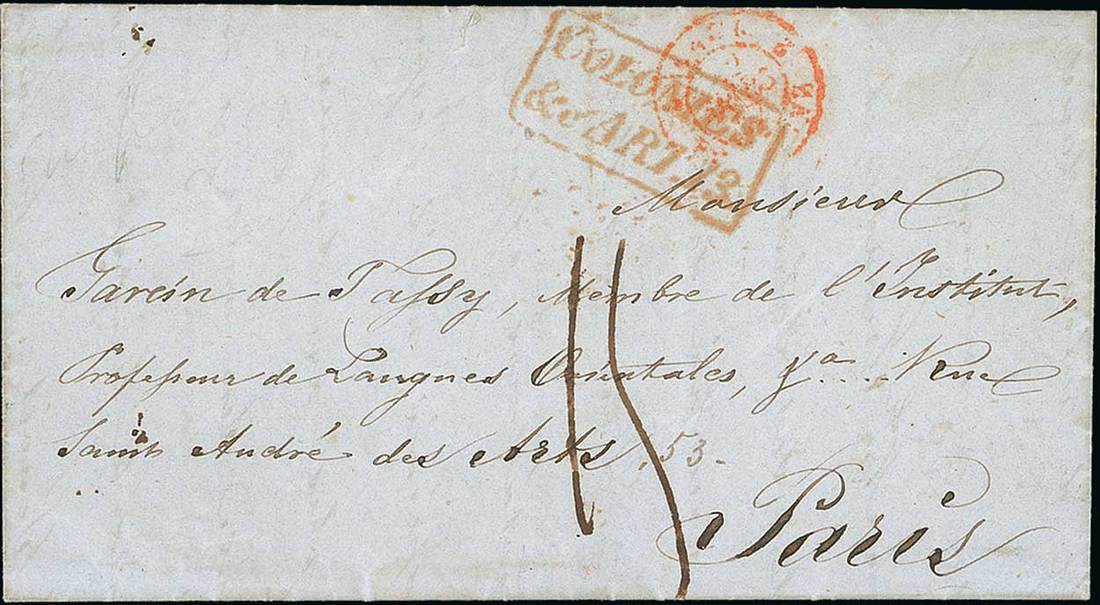 COLONIES
& ART. 13
Monsieur
Garcin de Tassy, Membre de l'Institut,
Professeur de Langues Orientales, Rue
Saint André des Arts, 53.
Paris
15